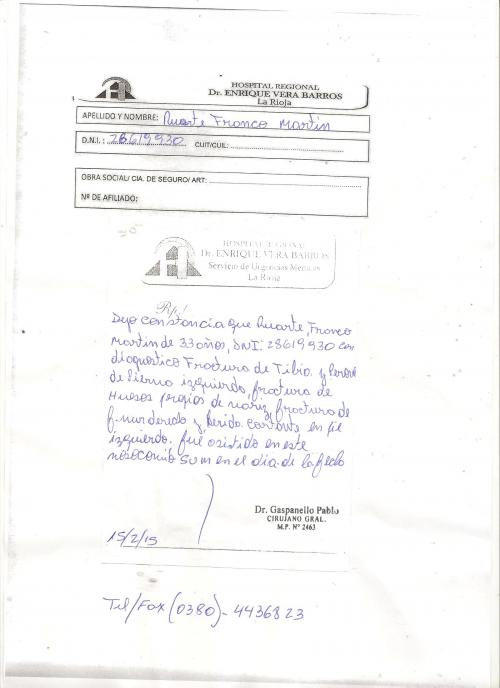 HOSPITAL REGIONAL
Dr. ENRIQUE VERA BARROS
La Rioja
APELLIDO Y NOMBRE: Ruarte Franco Martin
D.N.I.: 28619930 CUIT/CUIL:
OBRA SOCIAL/ CIA. DE SEGURO/ ART:
Nº DE AFILIADO:
HOSPITAL REGIONAL
Dr. ENRIQUE VERA BARROS
Servicio de Urgencias Medicas
La Rioja
Rp./
Dejo constancia que Ruarte, Franco
Martin de 33 años, DNI: 28619930 con
diagnostico Fractura de Tibia y Peroné
de Pierna izquierda, fractura de
Huesos propios de nariz, fractura de
y herida cortante en pie
izquierdo. fué asistido en este
nosocomio en el dia de la fecha
15/2/15
Dr. Gaspanello Pablo
CIRUJANO GRAL.
M.P. Nº 2463
Tel/Fax (0380)-4436823